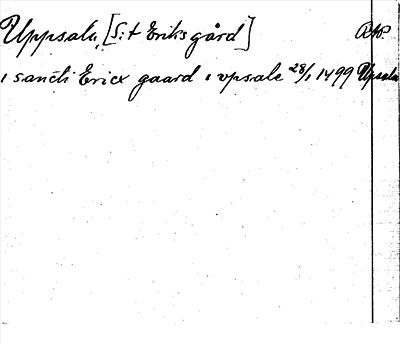 Uppsala, [S:t Eriks gård]
i sancti Ericx gaard i vpsale 28/1 1499 Upsala